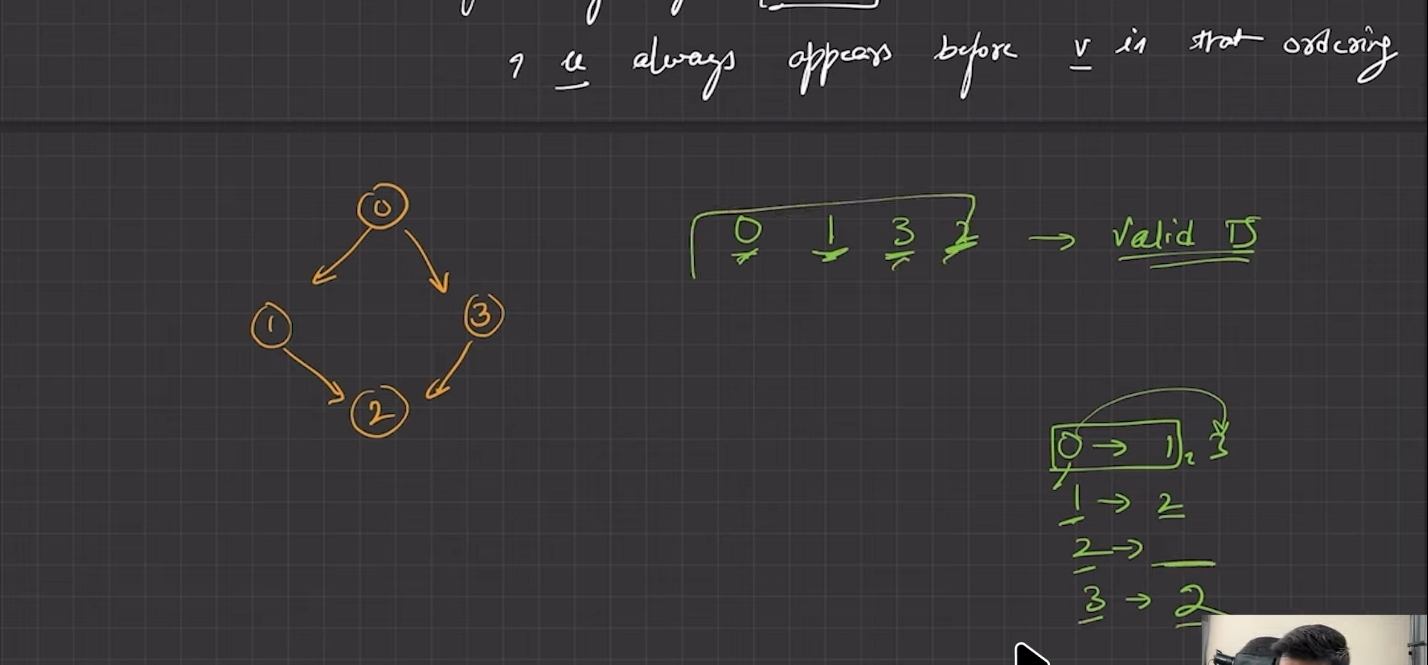 , u always appears before v in that ordering
0
0 1 3 2 → Valid TS
1
3
2
0 → 1, 3
1 → 2
2 → __
3 → 2